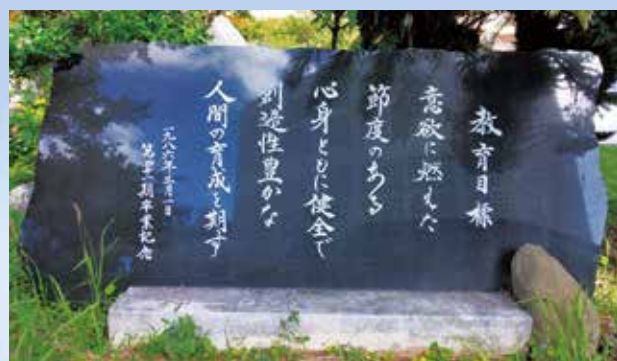 教育目標
意欲に燃えた
節度のある
心身ともに健全で
創造性豊かな
人間の育成を期す
一九八六年三月一日
期卒業記念